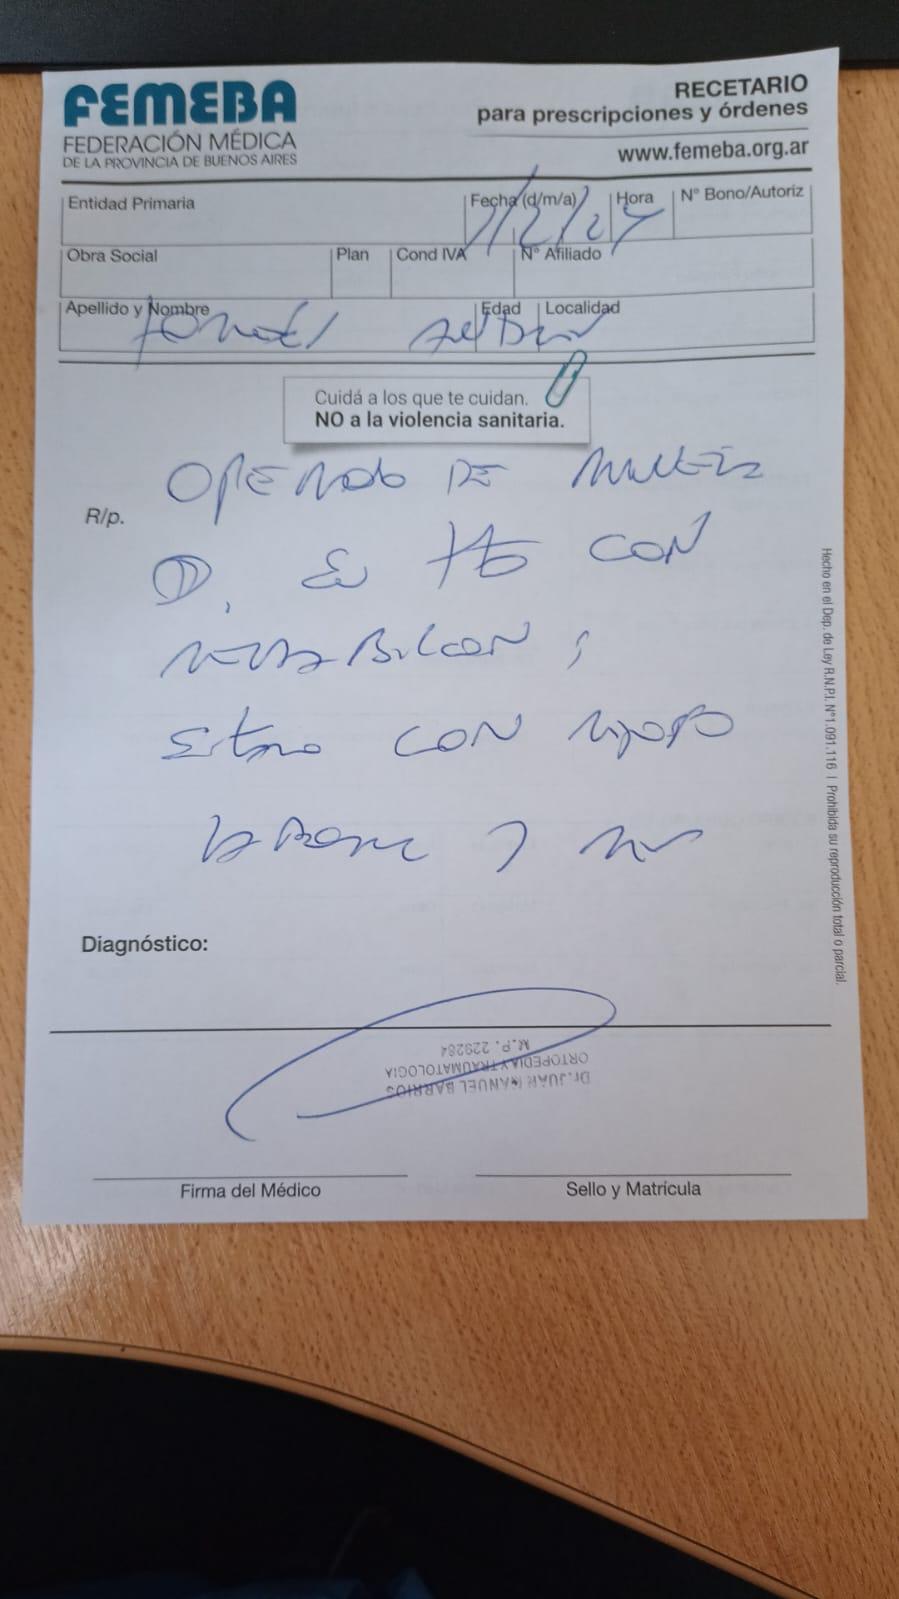 FEMEBA
FEDERACIÓN MÉDICA
DE LA PROVINCIA DE BUENOS AIRES
RECETARIO
para prescripciones y órdenes
www.femeba.org.ar
Entidad Primaria
Fecha (d/m/a)
Hora
N° Bono/Autoriz
Obra Social
Plan
Cond IVA
N° Afiliado
Apellido y Nombre
Edad
Localidad
Cuidá a los que te cuidan.
NO a la violencia sanitaria.
R/p.
OPERADO DE
D, En tto CON
Rehabilitacion,
CON reposo
laboral y
Diagnóstico:
Dr. JUAN MANUEL BARRIOS
ORTOPEDIA Y TRAUMATOLOGIA
M.P. 229284
Firma del Médico
Sello y Matrícula
Hecho en el Dep. de Ley R.N.P.I. N°1.091.116 | Prohibida su reproducción total o parcial.